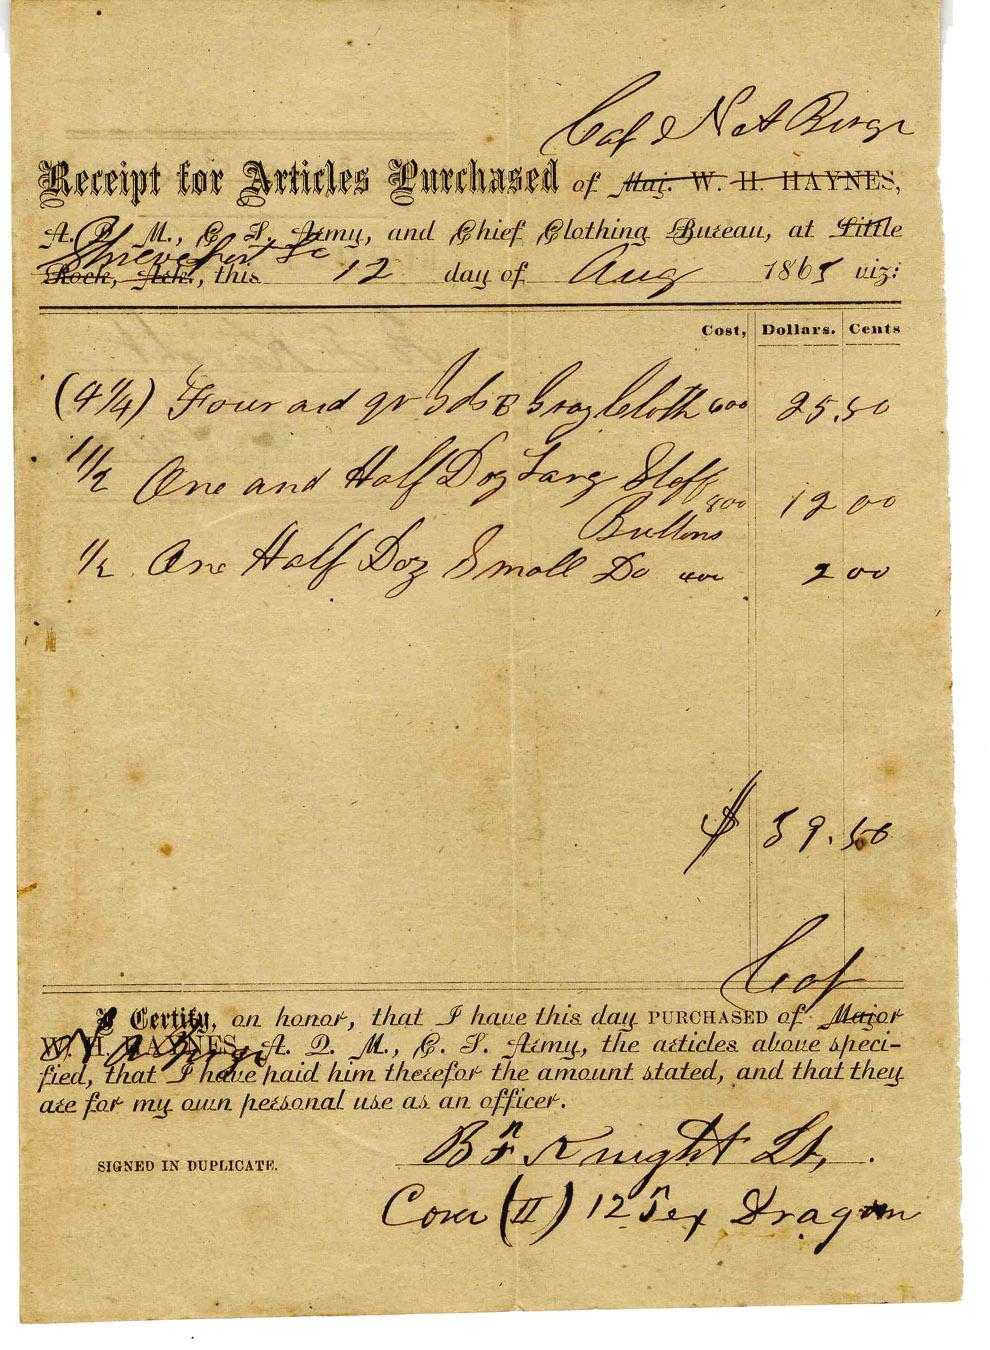 Capt N A Birge
Receipt for Articles Purchased of Maj. W. H. HAYNES,
A. Q. M., C. S. Army, and Chief Clothing Bureau, at Little
Shreveport La
Rock, Ark., this 12 day of Aug 1863 viz:
Cost, Dollars. Cents
(4 1/4) Four and qr Yds B Gray Cloth 600 25.50
1 1/2 One and Half Doz Larg Staff 800 12 00
Buttons
1/2 One Half Doz Small Do 400 2 00
$ 39.50
Capt
I Certify, on honor, that I have this day PURCHASED of Major
N A Birge
W. H. HAYNES, A. Q. M., C. S. Army, the articles above speci-
fied, that I have paid him therefor the amount stated, and that they
are for my own personal use as an officer.
B F Knight Lt,
SIGNED IN DUPLICATE.
(H) 12 Tex Dragoon